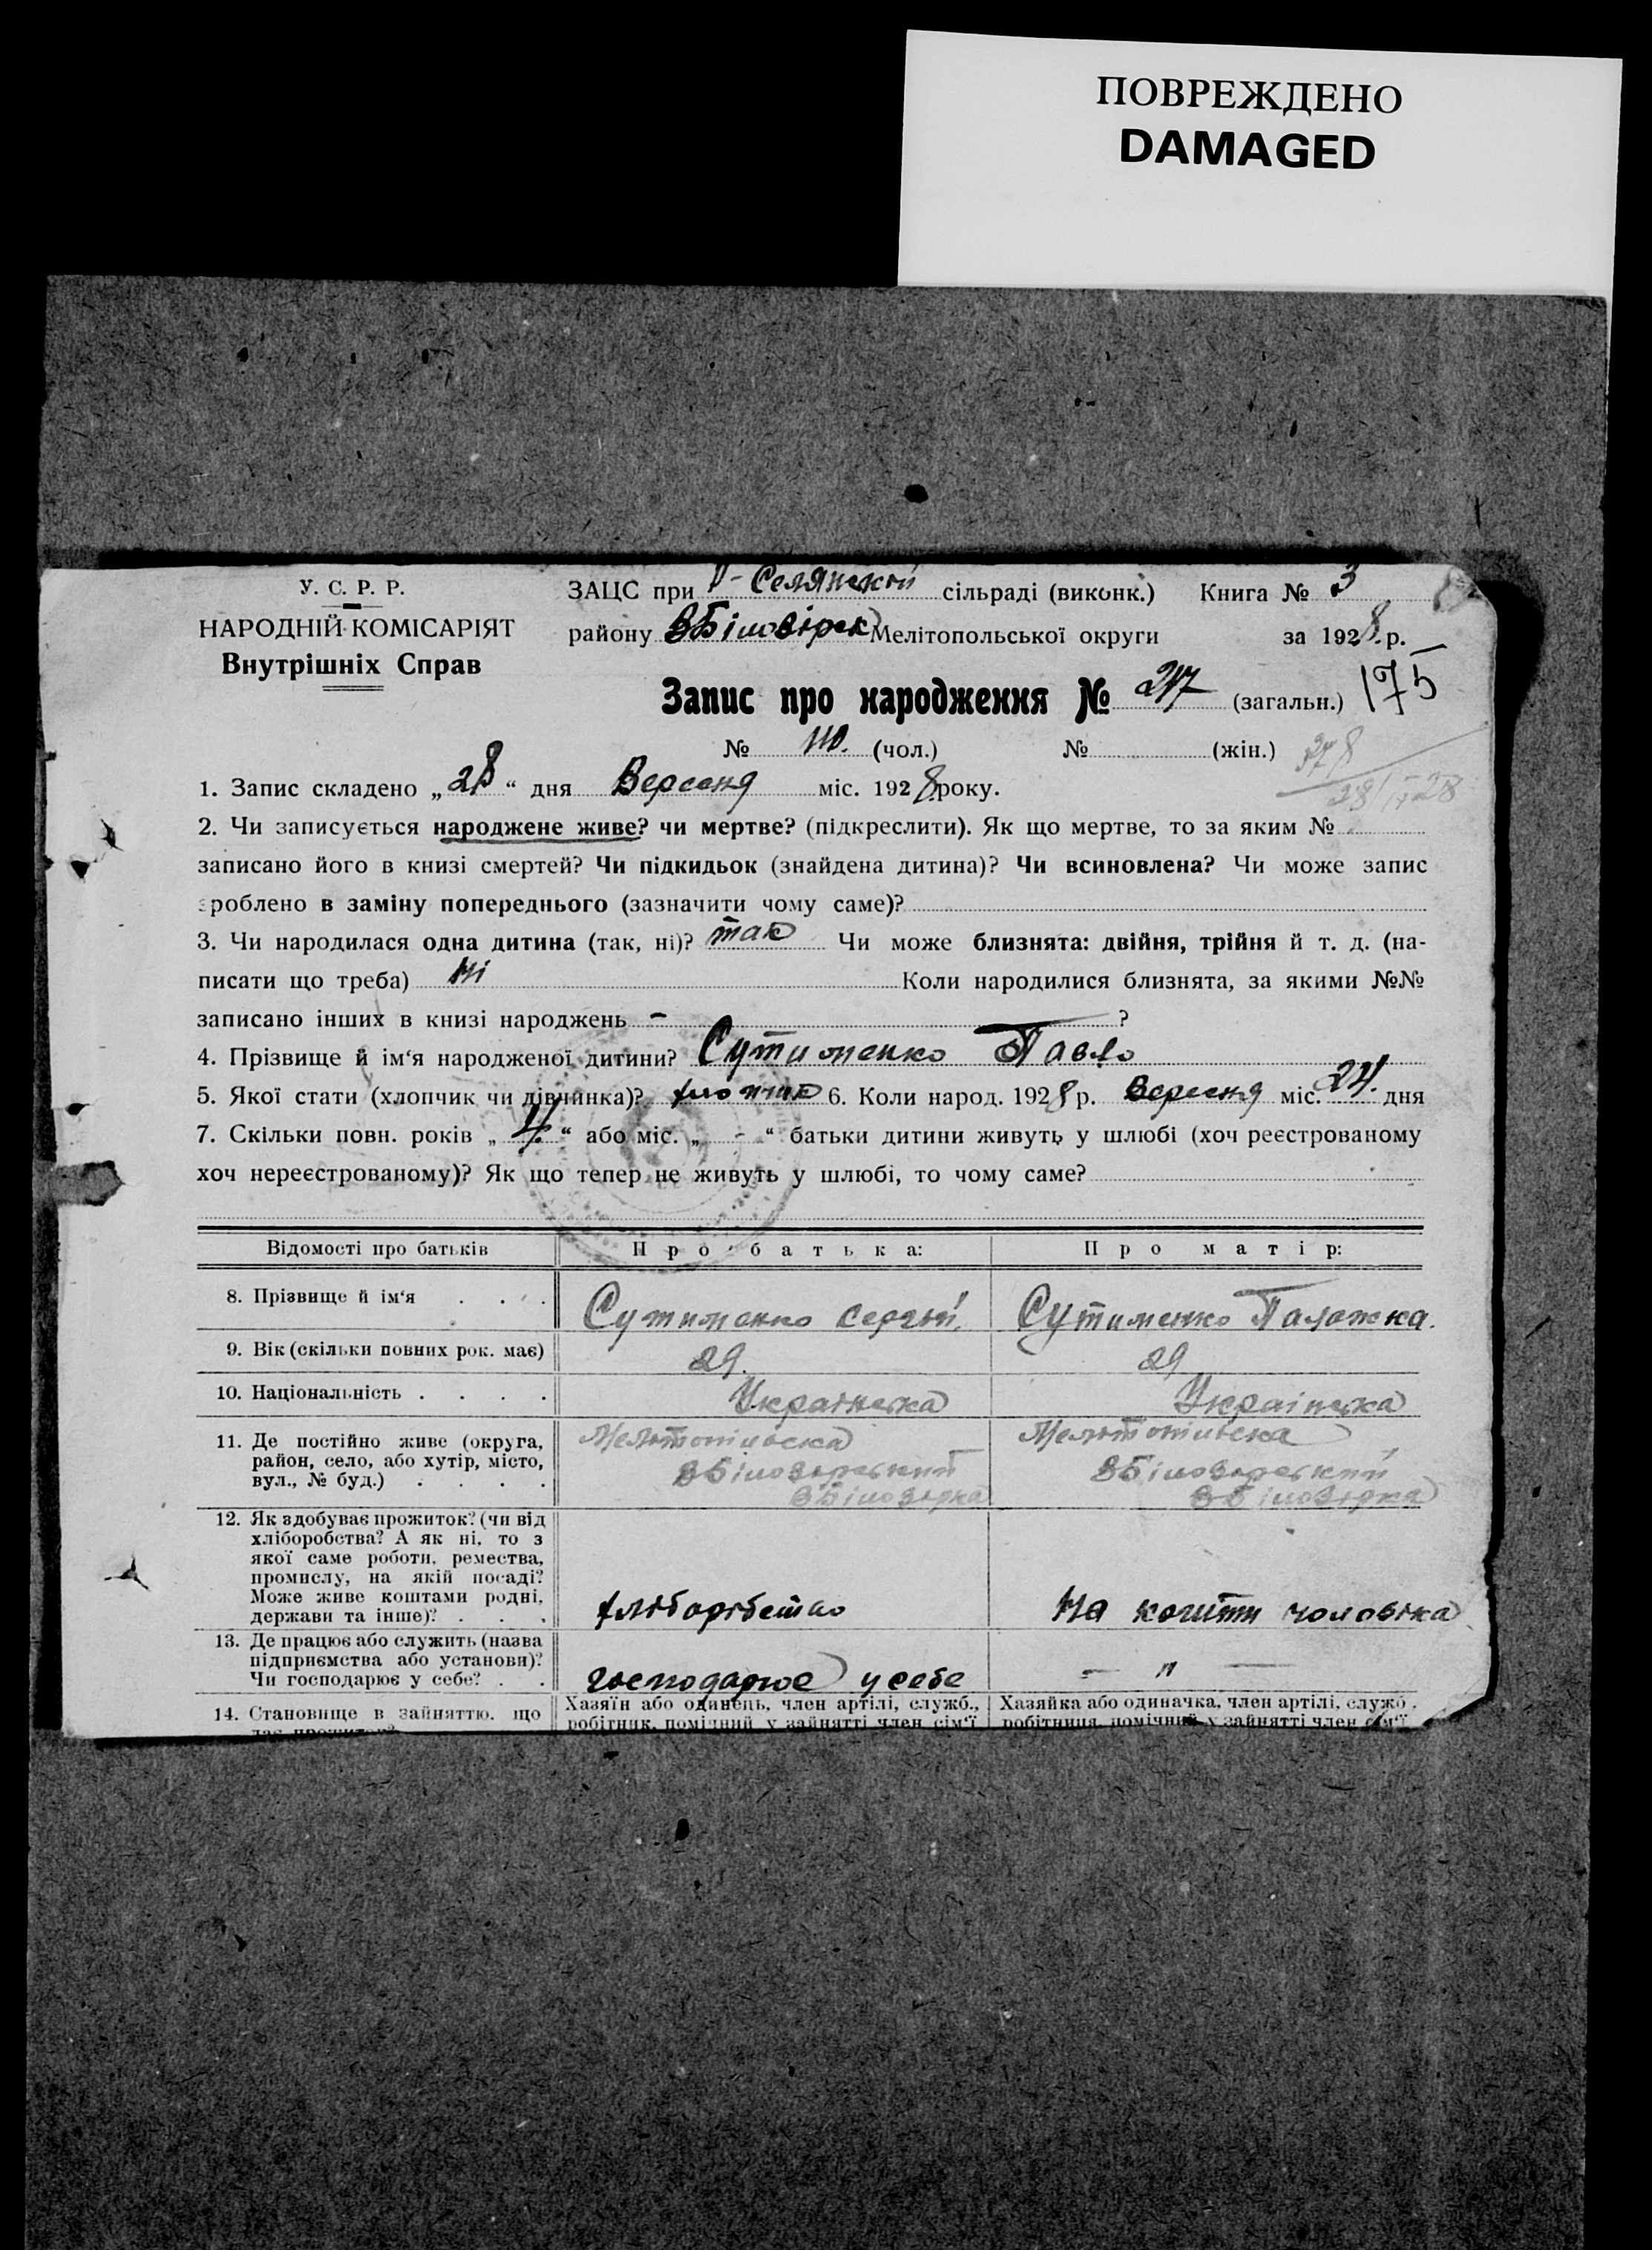 ПОВРЕЖДЕНО
DAMAGED
У. С. Р. Р.
НАРОДНІЙ КОМІСАРІЯТ
Внутрішніх Справ
ЗАЦС при Селянской сільраді (виконк.) Книга № 3
району ВБіловірск Мелітопольської округи за 1928 р.
Запис про народження № 217 (загальн.) 175
№ 110. (чол.) № (жін.)
1. Запис складено „28“ дня Вересня міс. 1928 року.
2. Чи записується народжене живе? чи мертве? (підкреслити). Як що мертве, то за яким №
записано його в книзі смертей? Чи підкидьок (знайдена дитина)? Чи всиновлена? Чи може запис
зроблено в заміну попереднього (зазначити чому саме)?
3. Чи народилася одна дитина (так, ні)? так Чи може близнята: двійня, трійня й т. д. (на-
писати що треба) ні Коли народилися близнята, за якими №№
записано інших в книзі народжень - ?
4. Прізвище й ім‘я народженої дитини? Сутименко Павло
5. Якої стати (хлопчик чи дівчинка)? 6. Коли народ. 1928 р. Вересня міс. 24. дня
7. Скільки повн. років „4.“ або міс. „-“ батьки дитини живуть у шлюбі (хоч реєстрованому
хоч нереєстрованому)? Як що тепер не живуть у шлюбі, то чому саме?
Відомості про батьків Про батька: Про матір:
8. Прізвище й ім‘я . . . Сутименко Сергій. Сутименко Палажка.
9. Вік (скільки повних рок. має) 29. 29
10. Національність . . . . Українська Українська
11. Де постійно живе (округа, район, село, або хутір, місто, вул., № буд.) . . . . Мелітопільска ВБіловірський ВБіловірка Мелітопільска ВБіловірський ВБіловірка
12. Як здобуває прожиток? (чи від хліборобства? А як ні, то з якої саме роботи, ремества, промислу, на якій посаді? Може живе коштами родні, держави та інше)? . . . хліборібство На кошти чоловіка
13. Де працює або служить (назва підприємства або установи)? Чи господарює у себе? . . господарює у себе — " —
14. Становище в зайняттю, що Хазяїн або одинець, член артілі, служб., Хазяйка або одиначка, член артілі, служб.,
дає прожиток? робітник, помічний у зайнятті член сім‘ї робітниця, помічний у зайнятті член сім‘ї